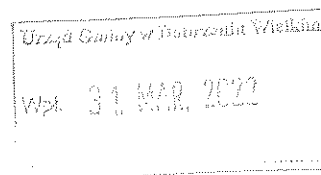 Urząd Gminy w Dobrzeniu Wielkim
Wpł. 31. MAR. 2023